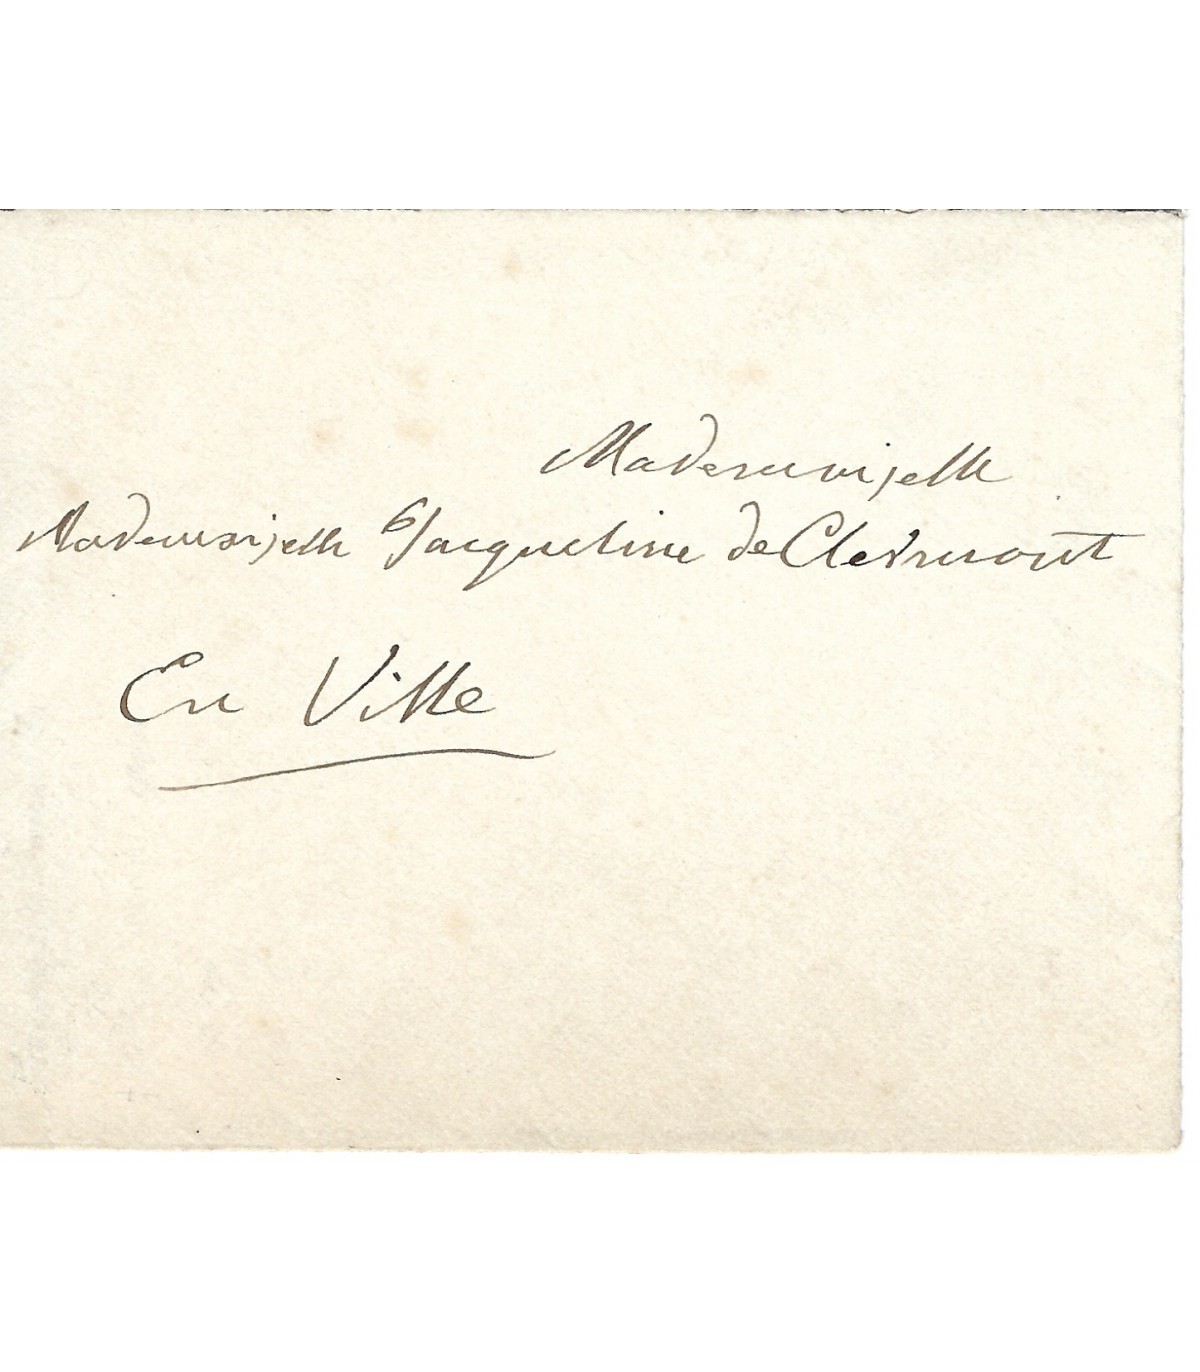 Mademoiselle
Mademoiselle Jacqueline de Clermont
En Ville